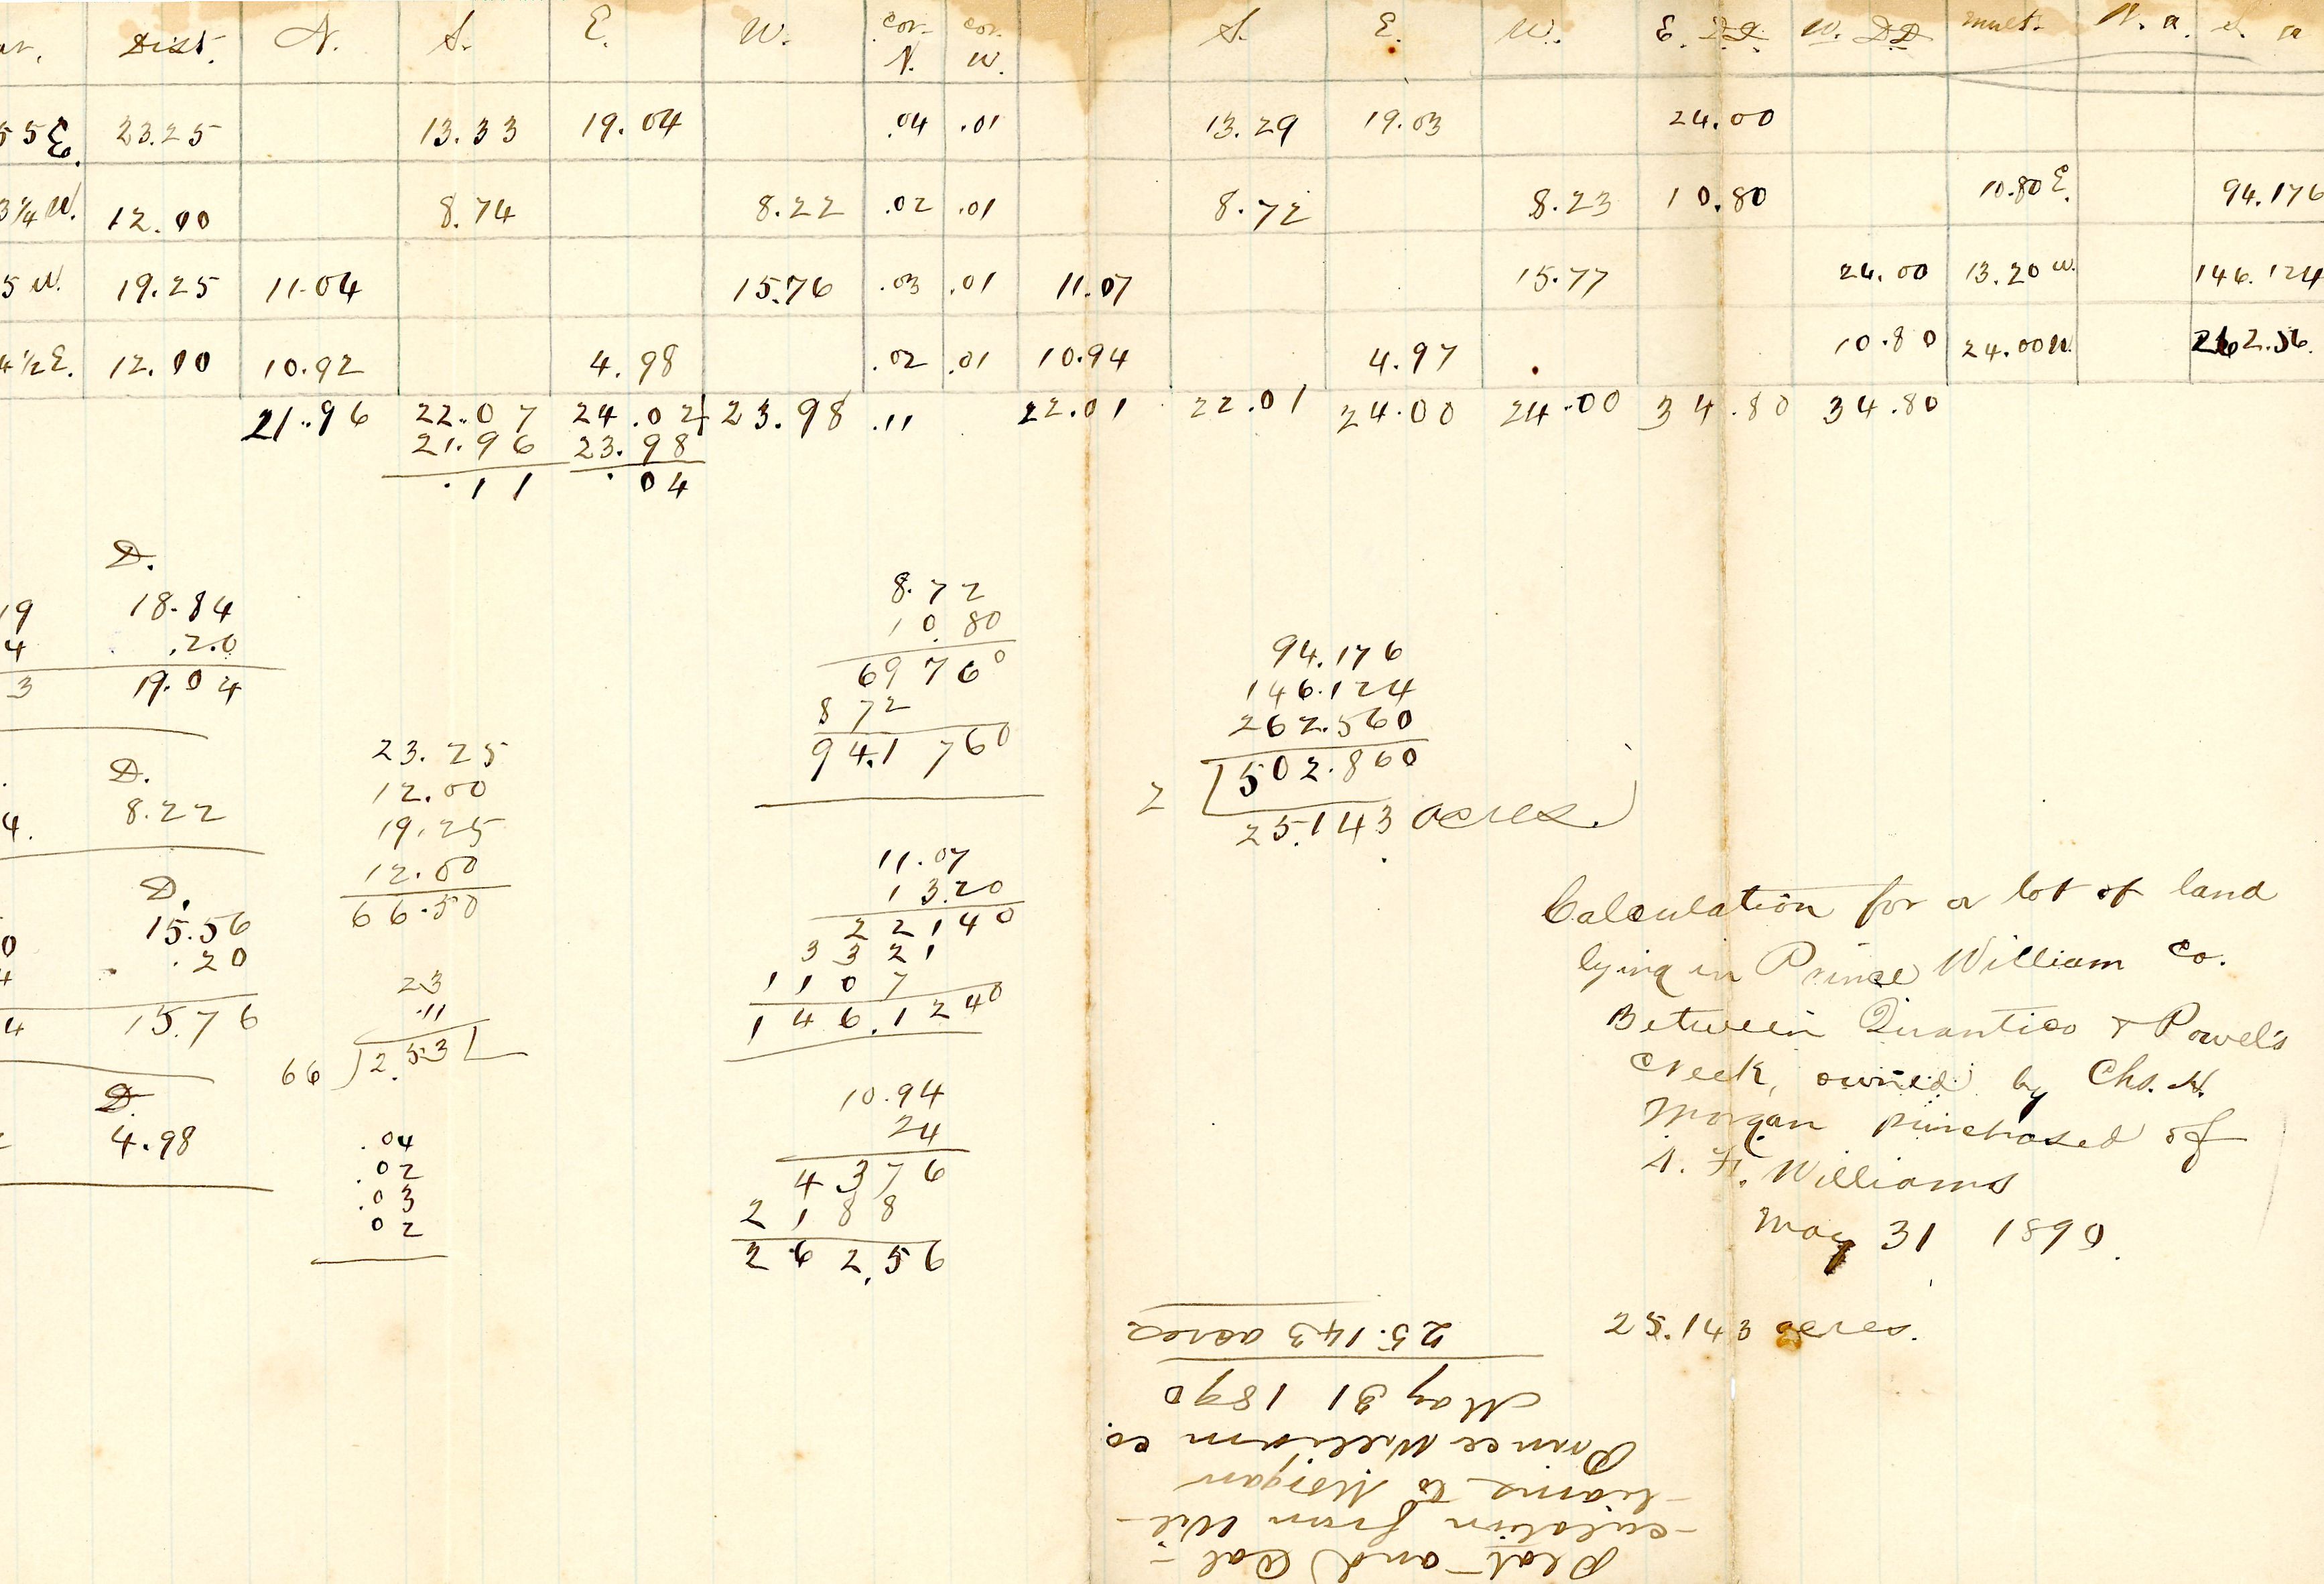 Dist. N. S. E. W. cor. N. cor. W. S. E. W. E. DD. W. DD mult. N. a. S. a
55 E. 23.25 13.33 19.04 .04 .01 13.29 19.03 24.00
3 1/4 W. 12.00 8.74 8.22 .02 .01 8.72 8.23 10.80 10.80 E. 94.176
5 W. 19.25 11.04 15.76 .03 .01 11.07 15.77 24.00 13.20 W. 146.124
4 1/2 E. 12.00 10.92 4.98 .02 .01 10.94 4.97 10.80 24.00 W. 262.56.
21.96 22.07 24.02 23.98 .11 22.01 22.01 24.00 24.00 34.80 34.80
21.96 23.98
.11 .04
D.
19 18.84
4 .20
3 19.04
D.
4. 8.22
D.
0 15.56
4 .20
4 15.76
D.
4.98
23.25
12.00
19.25
12.00
66.50
23
.11
66 ) 2.53
.04
.02
.03
02
8.72
10.80
69760
872
94.1760
11.07
13.20
22140
3321
1107
146.1240
10.94
24
4376
2188
262.56
94.176
146.124
262.560
2 502.860
25.143 acres.
Calculation for a lot of land
lying in Prince William Co.
Between Quantico & Powel's
Creek, owned by Chs. H.
Morgan purchased of
A. F. Williams
May 31 1890.
25.143 acres.
Plat and Cal-
-culation from Wil-
-liams to Morgan
Prince William Co.
May 31 1890
25.143 acres